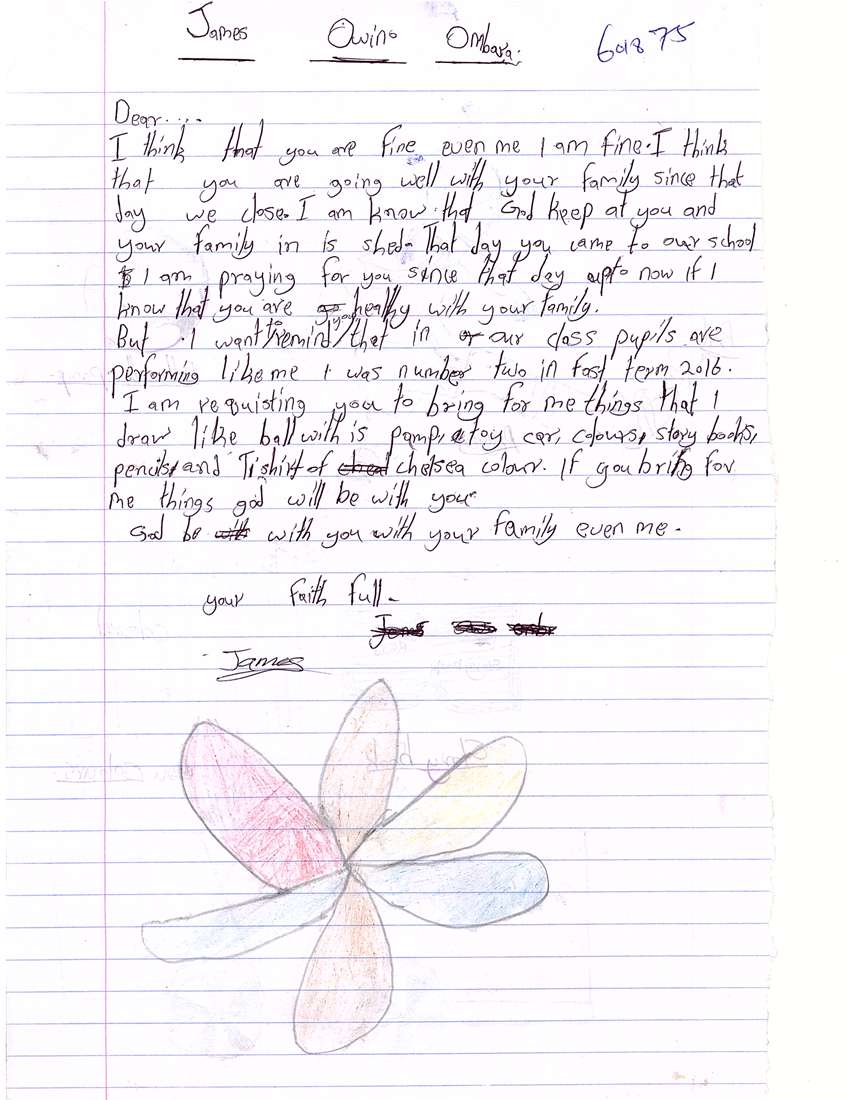 James Owino Ombara.
Dear....
I think that you are fine even me I am fine. I think
that you are going well with your family since that
day we close. I am know that God keep at you and
your family in is shed. That day you came to our school
I am praying for you since that day upto now if I
know that you are healthy with your family.
But I want to remind you that in our class pupils are
performing like me I was number two in fast term 2016.
I am requisting you to bring for me things that I
draw like ball with is pamp, a toy car, colours, story books,
pencils, and Tishirt of chelsea colour. If you bring for
me things god will be with you.
God be with you with your family even me.
your faith full.
James